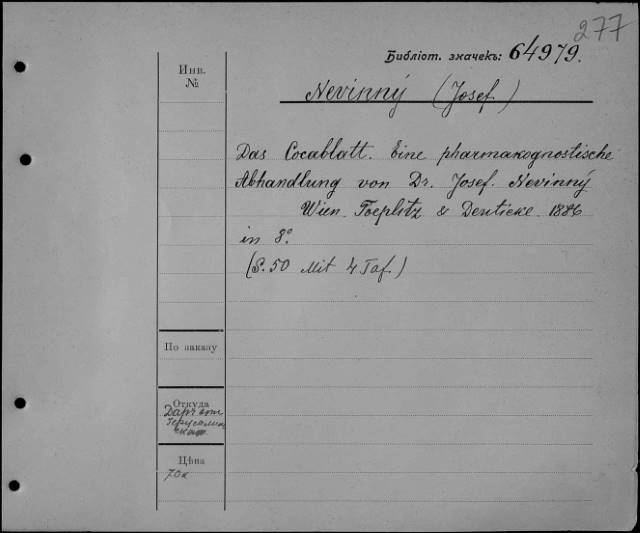 277
Библіот. значекъ: 64979.
Инв.
№
Nevinný (Josef)
Das Cocablatt. Eine pharmakognostische
Abhandlung von Dr. Josef. Nevinný
Wien. Toeplitz & Deuticke. 1886
in 8°.
(S. 50 Mit 4 Taf.)
По заказу
Откуда
Даръ отъ
Цѣна
70к